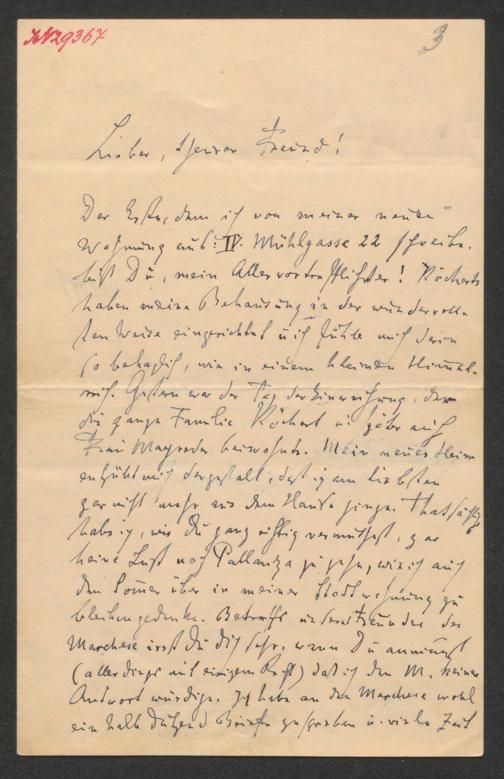 IN 29367
3
Lieber, theurer Freund!
Der Erste, dem ich von meiner neuen
Wohnung aus: IV. Mühlgasse 22 schreibe,
bist Du, mein Allervortrefflichster! Köcherts
haben meine Behausung in der wundervoll-
sten Weise eingerichtet u. ich fühle mich darin
so behaglich, wie in einem kleinen Himmel-
reich. Gestern war der Tag der Einweihung, dem
die ganze Familie Köchert u. später auch
Frau Mayreder beiwohnte. Mein neues Heim
entzückt mich dergestalt, dass ich am liebsten
gar nicht mehr aus dem Hause ginge. Thatsächlich
habe ich, wie Du ganz richtig vermuthest, gar
keine Lust nach Pallanza zu gehn, wie ich auch
den Somer über in meiner Stadtwohnung zu
bleiben gedenke. Betreffs unseres Freundes des
Marchese irrst Du Dich sehr, wenn Du annimmst
(allerdings mit einigem Recht) dass ich den M. keiner
Antwort würdige. Ich habe an den Marchese wohl
ein halb Dutzend Briefe geschrieben u. viele Zeit